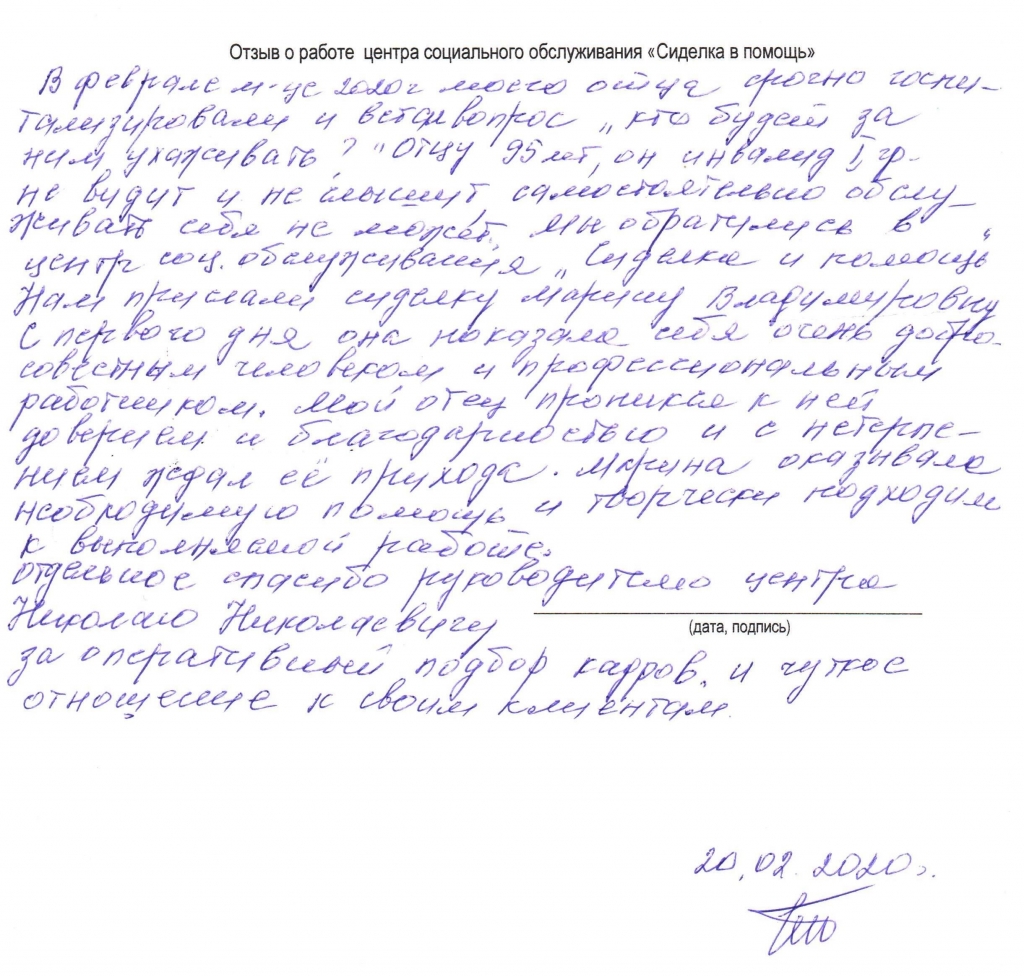 Отзыв о работе центра социального обслуживания «Сиделка в помощь»
В феврале м-це 2020г моего отца срочно госпи-
тализировали и встал вопрос „кто будет за
ним ухаживать?" Отцу 95 лет, он инвалид I гр.
не видит и не слышит, самостоятельно обслу-
живать себя не может. Мы обратились в
центр соц. обслуживания „Сиделка и помощь"
Нам прислали сиделку Марину Владимировну
С первого дня она показала себя очень добро-
совестным человеком и профессиональным
работником. Мой отец проникся к ней
доверием и благодарностью и с нетерпе-
нием ждал её прихода. Марина оказывала
необходимую помощь и творчески подходила
к выполняемой работе.
Отдельное спасибо руководителю центра
Николаю Николаевичу
(дата, подпись)
за оперативный подбор кадров, и чуткое
отношение к своим клиентам.
20.02.2020г.